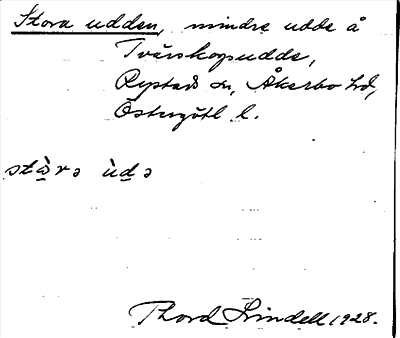 Stora udden, mindre udde å
Tvärskogsudde,
Rystad sn, Åkerbo hd,
Östergötl l.
stὰ̱rə ùḏə
Thord Lindell 1928.